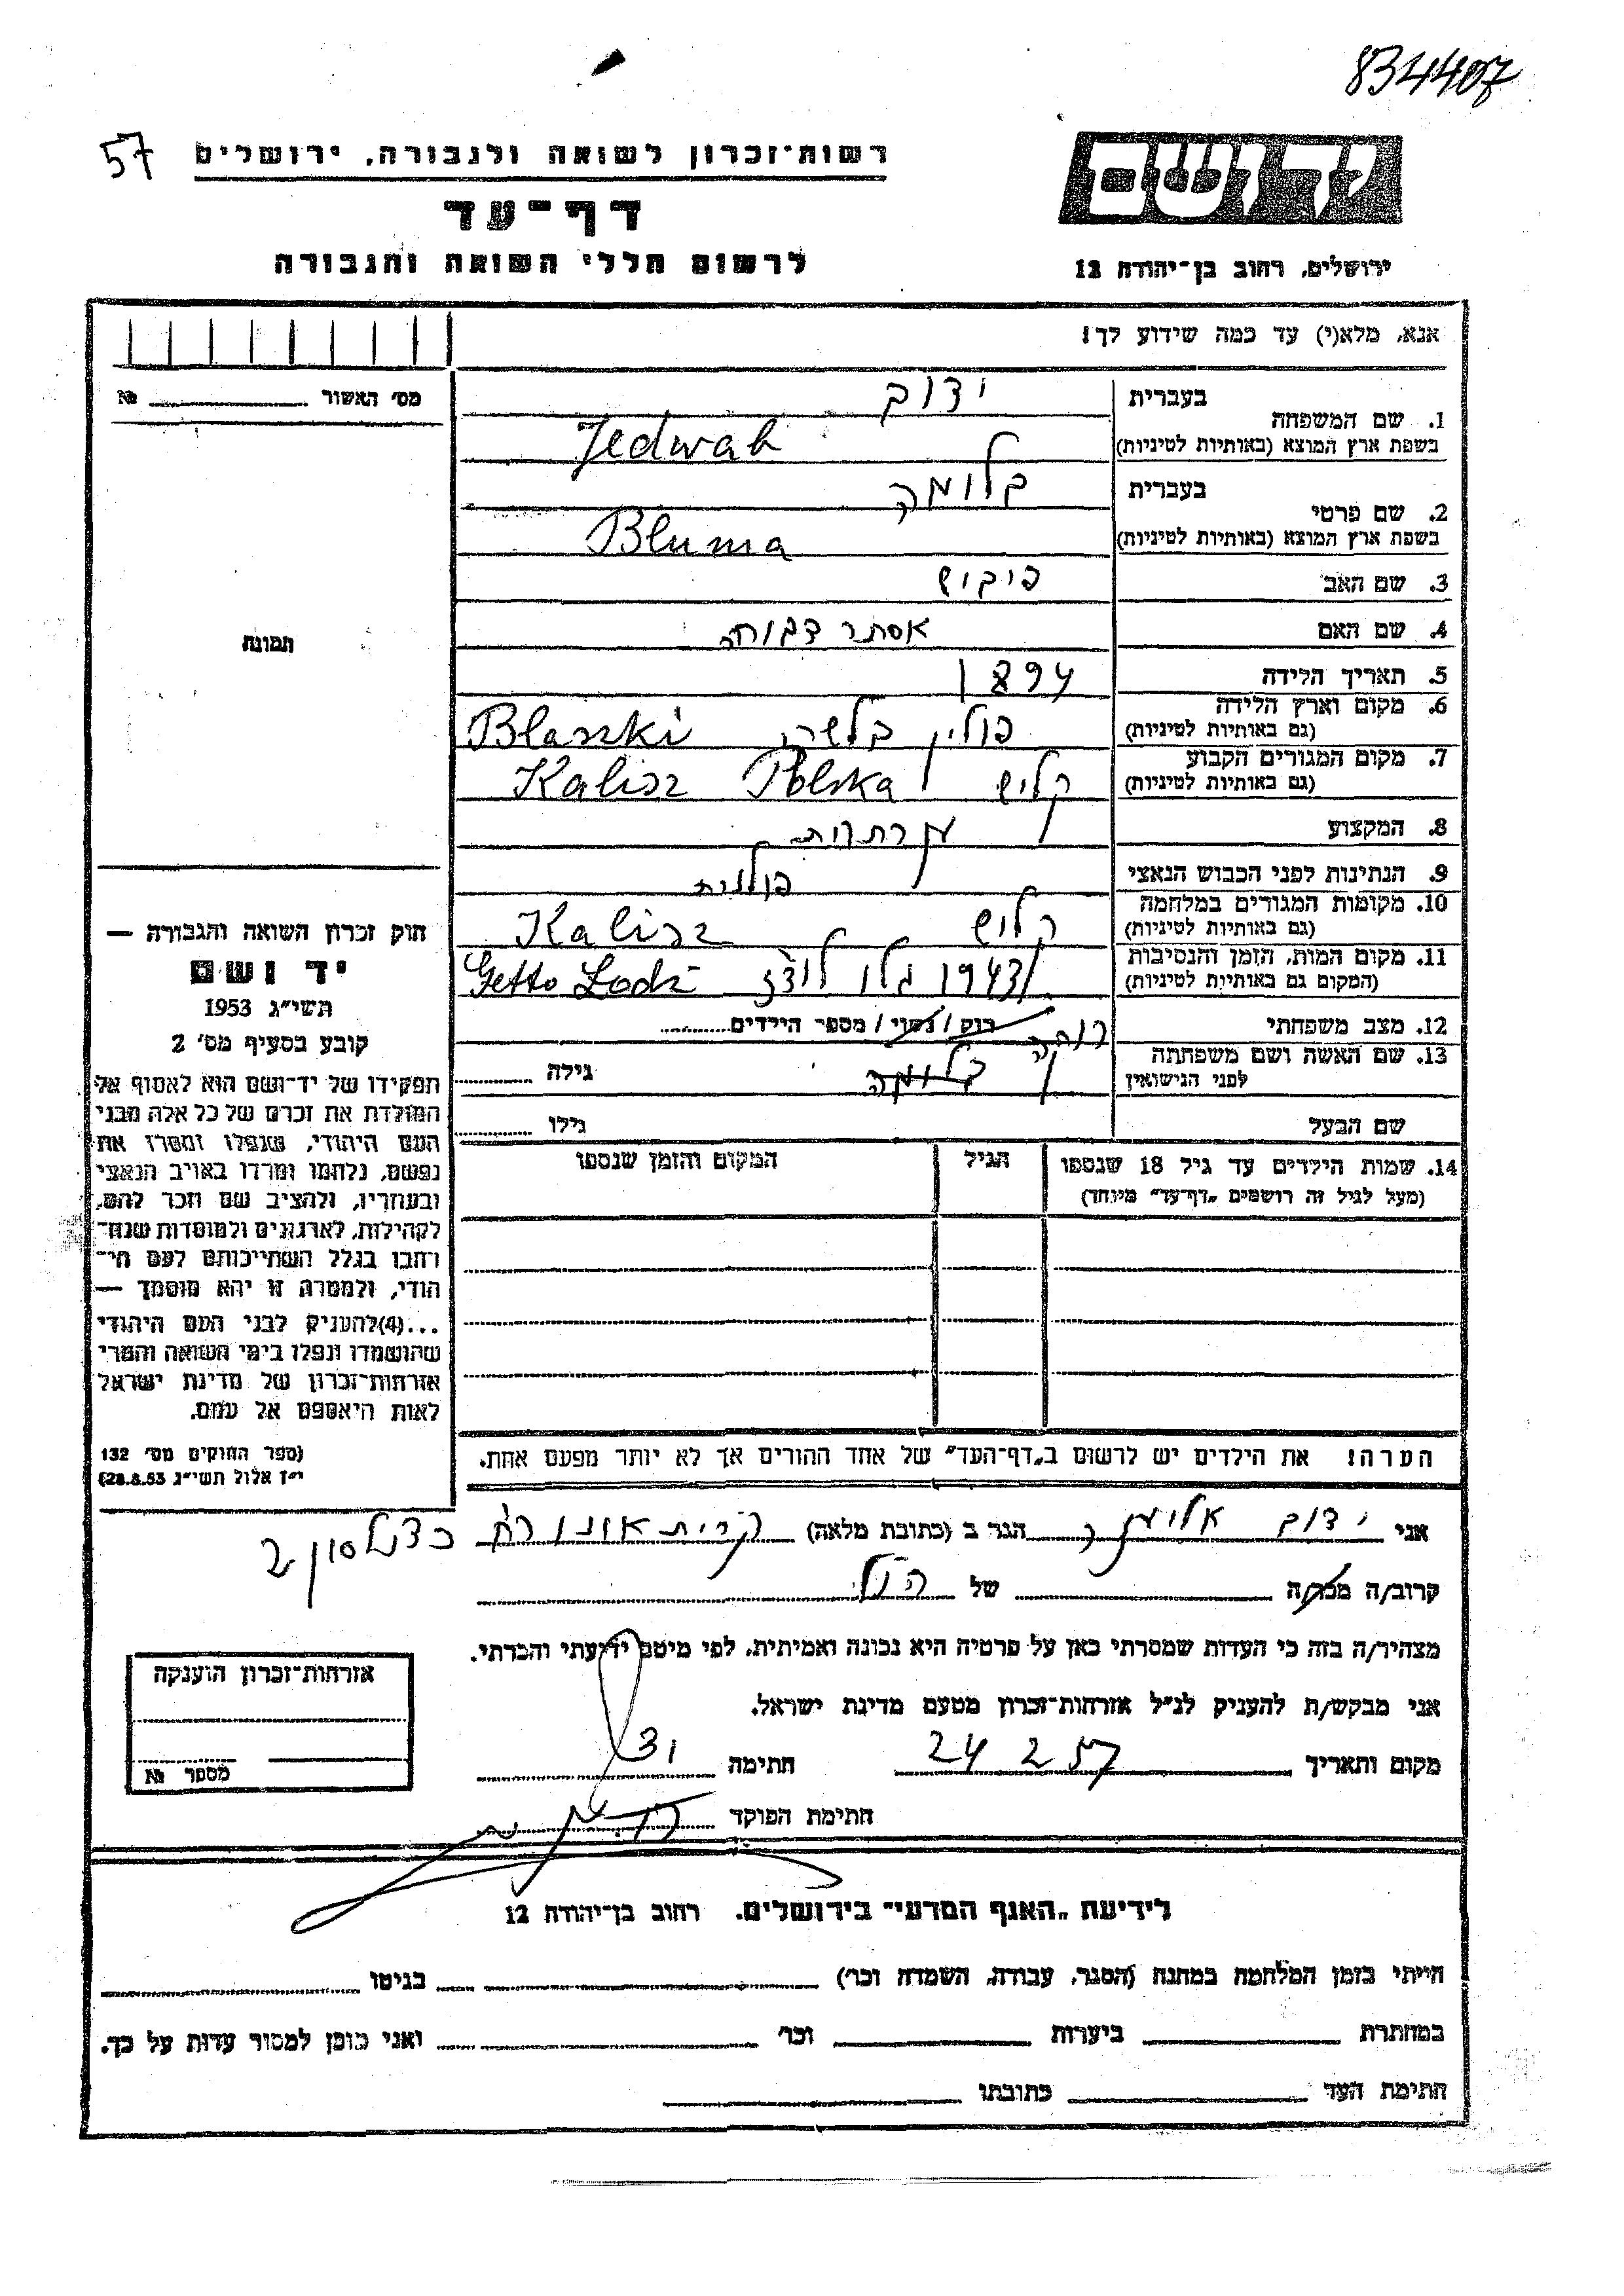 834407
57
רשות־זכרון לשואה ולגבורה, ירושלים
דף־עד
לרשום חללי השואה והגבורה
יד ושם
ירושלים, רחוב בן־יהודה 12
אנא, מלא(י) עד כמה שידוע לך!
מס׳ האשור №
1. שם המשפחה
בעברית ידוב
בשפת ארץ המוצא (באותיות לטיניות) Jedwab
2. שם פרטי
בעברית בלומה
בשפת ארץ המוצא (באותיות לטיניות) Bluma
3. שם האב פיבוש
4. שם האם אסתר
5. תאריך הלידה 1894
6. מקום וארץ הלידה
(גם באותיות לטיניות) פולין Blaszki
7. מקום המגורים הקבוע
(גם באותיות לטיניות) קליש Kalisz Polska
8. המקצוע
9. הנתינות לפני הכבוש הנאצי פולנית
10. מקומות המגורים במלחמה
(גם באותיות לטיניות) קליש Kalisz
11. מקום המות, הזמן והנסיבות
(המקום גם באותיות לטיניות) 1943 גטו לודז Getto Lodz
12. מצב משפחתי רוק / נשוי / מספר הילדים
13. שם האשה ושם משפחתה
לפני הנישואין בלומה גילה
שם הבעל גילו
14. שמות הילדים עד גיל 18 שנספו הגיל המקום והזמן שנספו
(מעל לגיל זה רושמים „דף־עד״ מיוחד)
תמונה
חוק זכרון השואה והגבורה —
יד ושם
תשי״ג 1953
קובע בסעיף מס׳ 2
תפקידו של יד־ושם הוא לאסוף אל
המולדת את זכרם של כל אלה מבני
העם היהודי, שנפלו ומסרו את
נפשם, נלחמו ומרדו באויב הנאצי
ובעוזריו, ולהציב שם וזכר להם,
לקהילות, לארגונים ולמוסדות שנח־
רבו בגלל השתייכותם לעם הי־
הודי, ולמטרה זו יהא מוסמך —
...(4)להעניק לבני העם היהודי
שהושמדו ונפלו בימי השואה והמרי
אזרחות־זכרון של מדינת ישראל
לאות היאספם אל עמם.
(ספר החוקים מס׳ 132
י״ז אלול תשי״ג 28.8.53)
הערה! את הילדים יש לרשום ב„דף־העד״ של אחד ההורים אך לא יותר מפעם אחת.
אני ידוב הגר ב (כתובת מלאה) קרית אונו רח׳ כצנלסון 2
קרוב/ה מכר/ה של הנ״ל
מצהיר/ה בזה כי העדות שמסרתי כאן על פרטיה היא נכונה ואמיתית, לפי מיטב ידיעתי והכרתי.
אני מבקש/ת להעניק לנ״ל אזרחות־זכרון מטעם מדינת ישראל.
מקום ותאריך 24 2 57 חתימה
חתימת הפוקד
אזרחות־זכרון הוענקה
מספר №
לידיעת „האגף המדעי״ בירושלים. רחוב בן־יהודה 12
הייתי בזמן המלחמה במחנה (הסגר, עבודה, השמדה וכר׳) בגיטו
במחתרת ביערות וכר׳ ואני מוכן למסור עדות על כך.
חתימת העד כתובתו